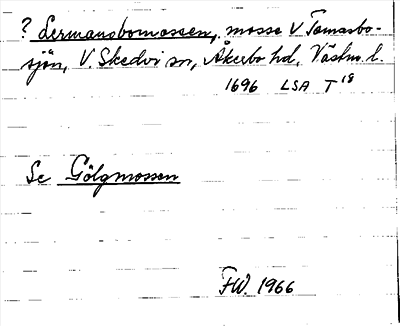 ? Lermansbomossen, mosse V Tomasbo-
sjön, V. Skedvi sn, Åkerbo hd, Västm. l.
1696 LSA T 18
Se Gölgmossen
FW. 1966